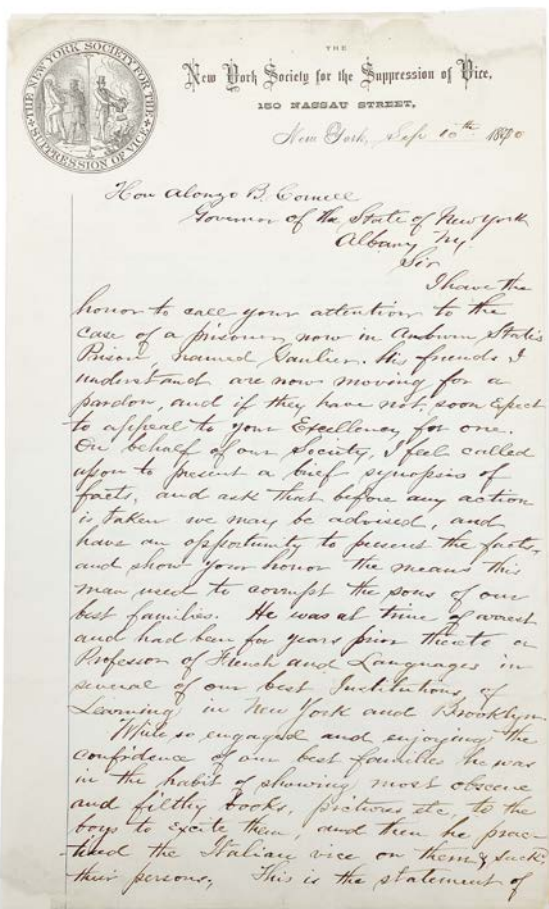 THE NEW YORK SOCIETY FOR THE SUPPRESSION OF VICE
THE
New York Society for the Suppression of Vice,
150 NASSAU STREET,
New York, Sep 10th 1880
Hon Alonzo B. Cornell
Governor of the State of New York
Albany Ny.
Sir
I have the
honor to call your attention to the
case of a prisoner now in Auburn States
Prison, named Gaulier. His friends I
understand are now moving for a
pardon, and if they have not, soon Expect
to appeal to your Excellency for one.
On behalf of our Society, I feel called
upon to present a brief synopsis of
facts, and ask that before any action
is taken we may be advised, and
have an opportunity to present the facts,
and show your honor the means this
man used to corrupt the sons of our
best families. He was at time of arrest
and had been for years prior thereto a
Professor of French and Languages in
several of our best Institutions of
Learning in New York and Brooklyn.
While so engaged and enjoying the
confidence of our best families he was
in the habit of showing most obscene
and filthy books, pictures etc, to the
boys to Excite them, and then he prac-
ticed the Italian vice on them &
their persons. This is the statement of